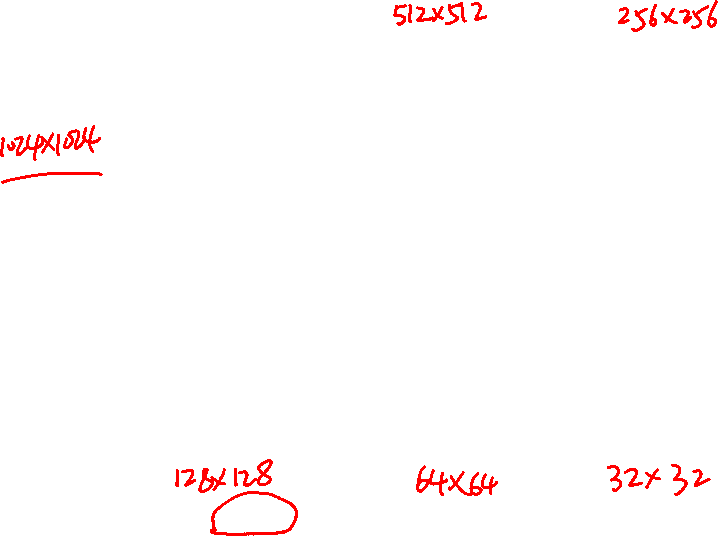 512×512
256×256
1024×1024
128×128
64×64
32×32